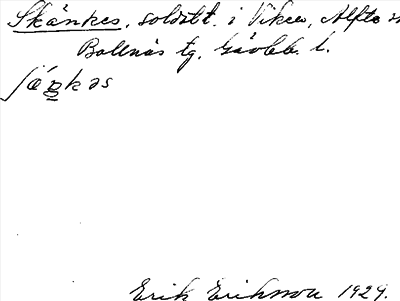 Skänkes, soldatt. i Viken, Alfta s
Bollnäs tg. Gävleb. l.
ʃäŋkəs
Erik Erikson 1929.